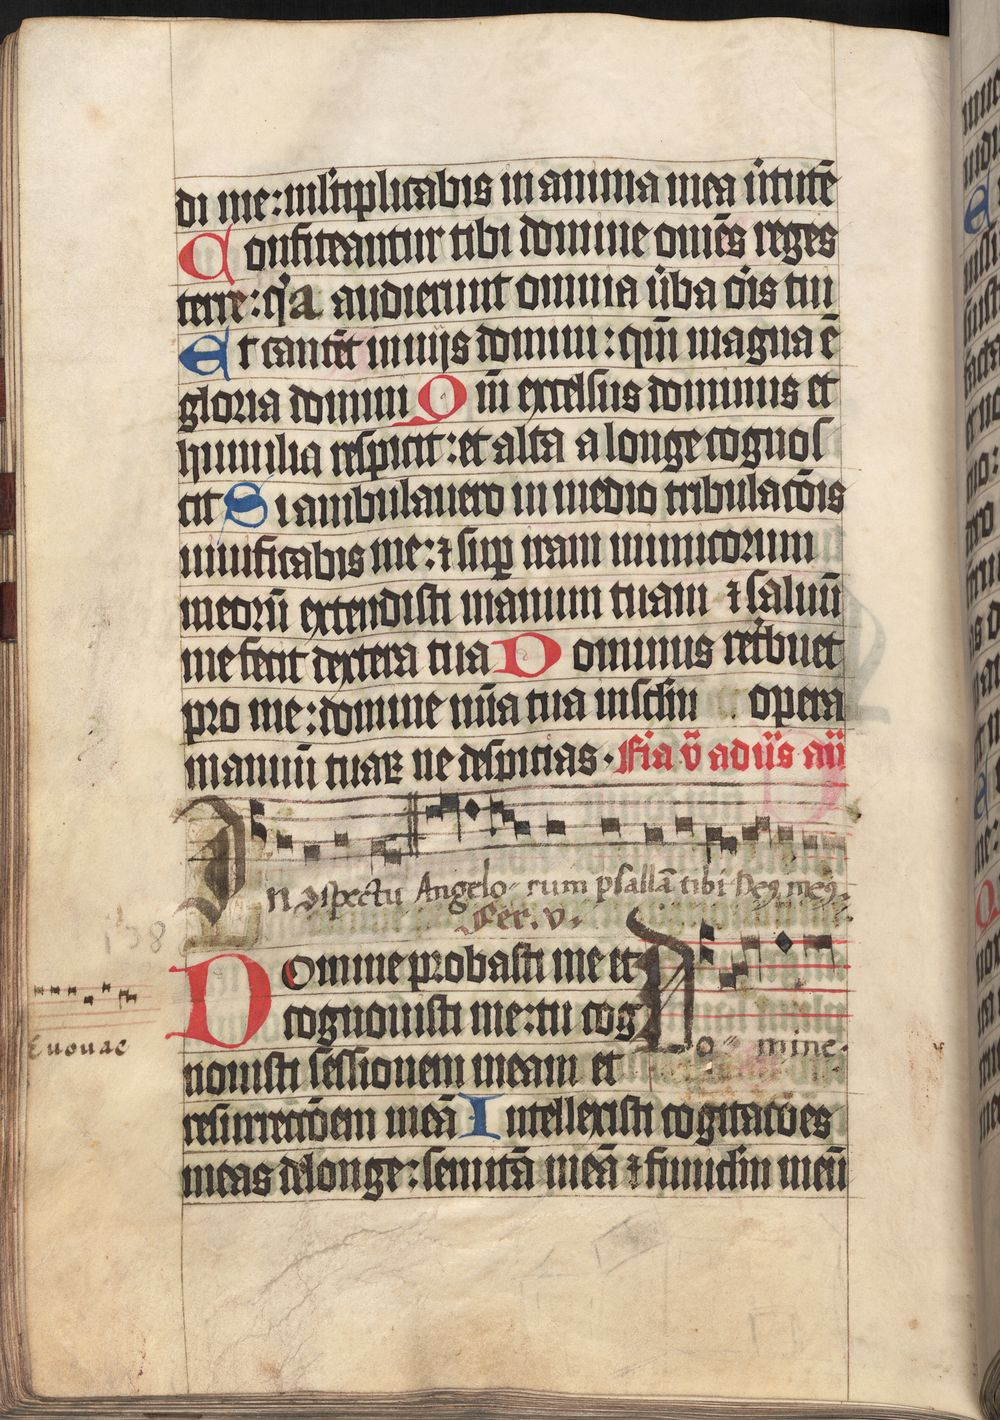 di me: mľtiplicabis in anima mea v̾tutē
Confiteantur tibi domine om̄es reges
terre: qͥa audierunt omnia v̾ba oris tui
Et cantēt in viis domini: qm̄ magna ē
gloria domini Qm̄ excelsus dominus et
humilia respicit: et alta a longe cognos
cit Si ambulauero in medio tribulacōis
viuificabis me: ⁊ suꝑ iram inimicorum
meorū extendisti manum tuam ⁊ saluū
me fecit dextera tua Dominus ret̾buet
pro me: domine mīa tua in sc̄lm opera
manuū tuaꝝ ne despicias · Fīa v̄ ad
In 9spectu Angelo- rum psallā tibi De9 me9.
Fer. v.
138
Domine probasti me et
cognouisti me: tu cog
Do- mine.
Euouae
nouisti sessionem meam et
resurrectōem meā Intellexisti cogitatōes
meas delonge: semitā meā ⁊ funiclm meū